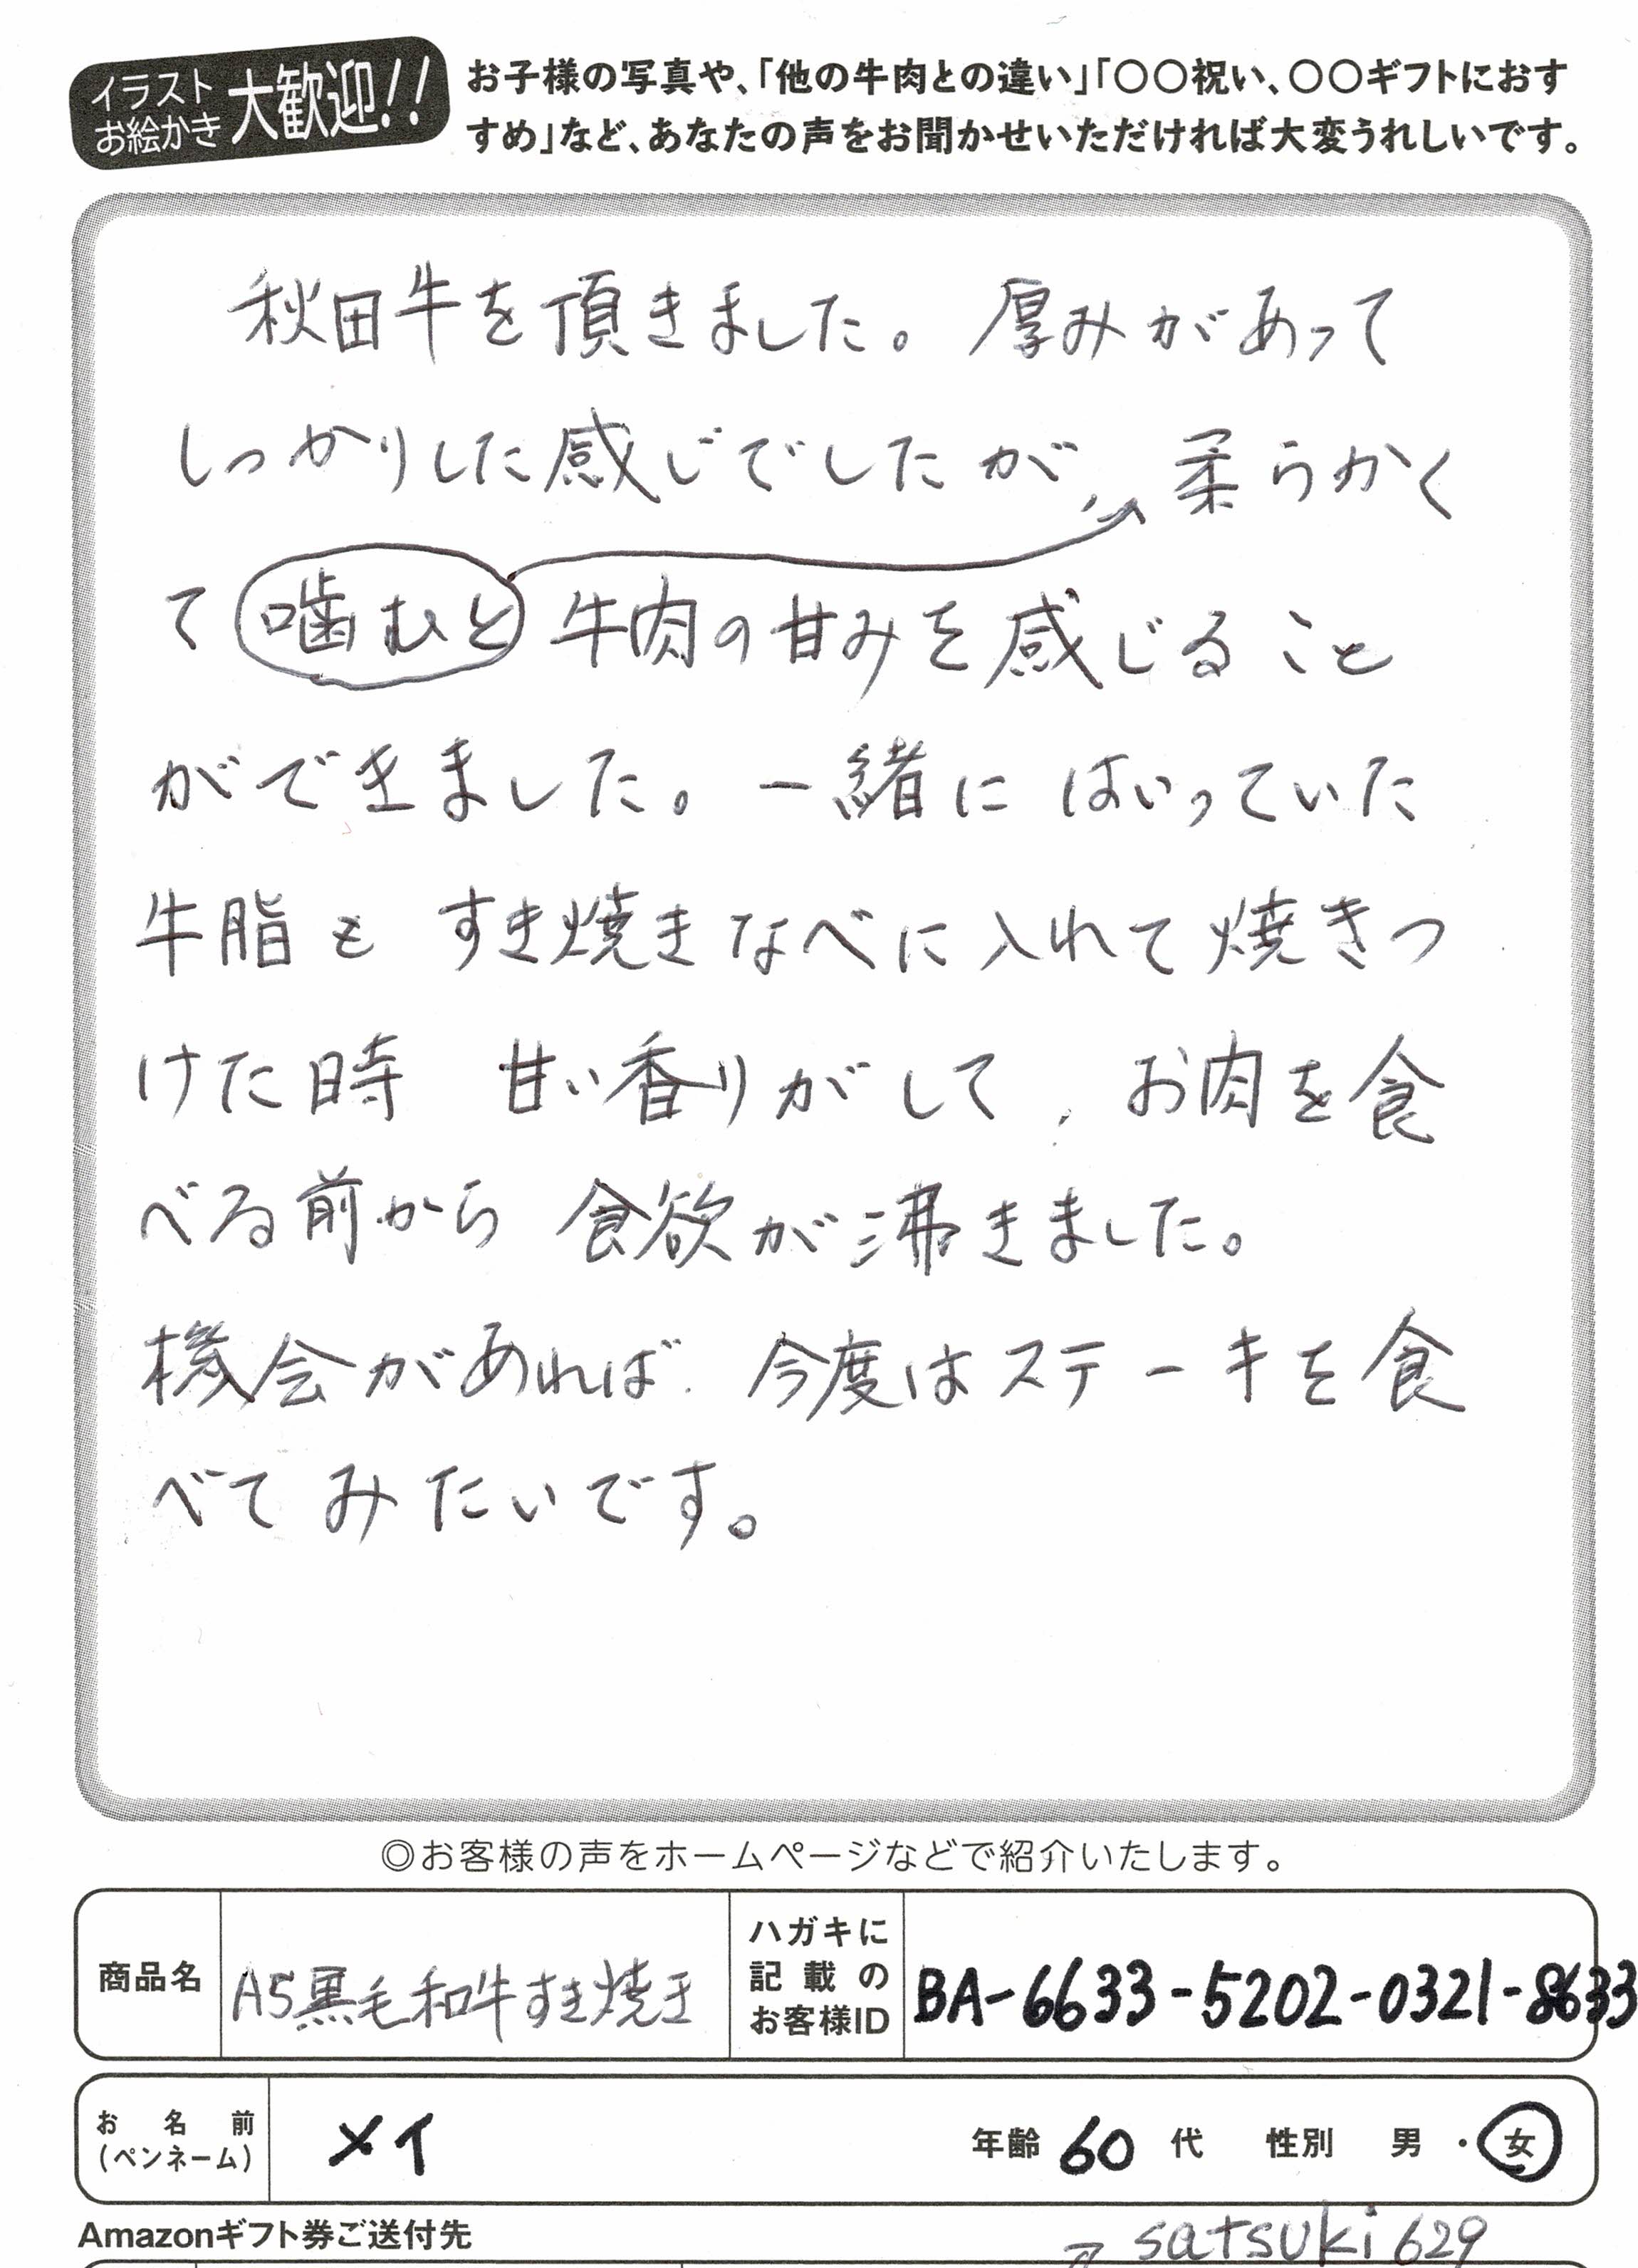 イラスト
お絵かき
大歓迎!!
お子様の写真や、「他の牛肉との違い」「〇〇祝い、〇〇ギフトにおす
すめ」など、あなたの声をお聞かせいただければ大変うれしいです。
秋田牛を頂きました。厚みがあって
しっかりした感じでしたが、柔らかく
て噛むと牛肉の甘みを感じること
ができました。一緒にはいっていた
牛脂もすき焼きなべに入れて焼きつ
けた時 甘い香りがして、お肉を食
べる前から 食欲が沸きました。
機会があれば、今度はステーキを食
べてみたいです。
◎お客様の声をホームページなどで紹介いたします。
商品名
A5黒毛和牛すき焼き
ハガキに
記載の
お客様ID
BA-6633-5202-0321-8633
お名前
(ペンネーム)
メイ
年齢 60 代 性別 男・女
Amazonギフト券ご送付先
satsuki629